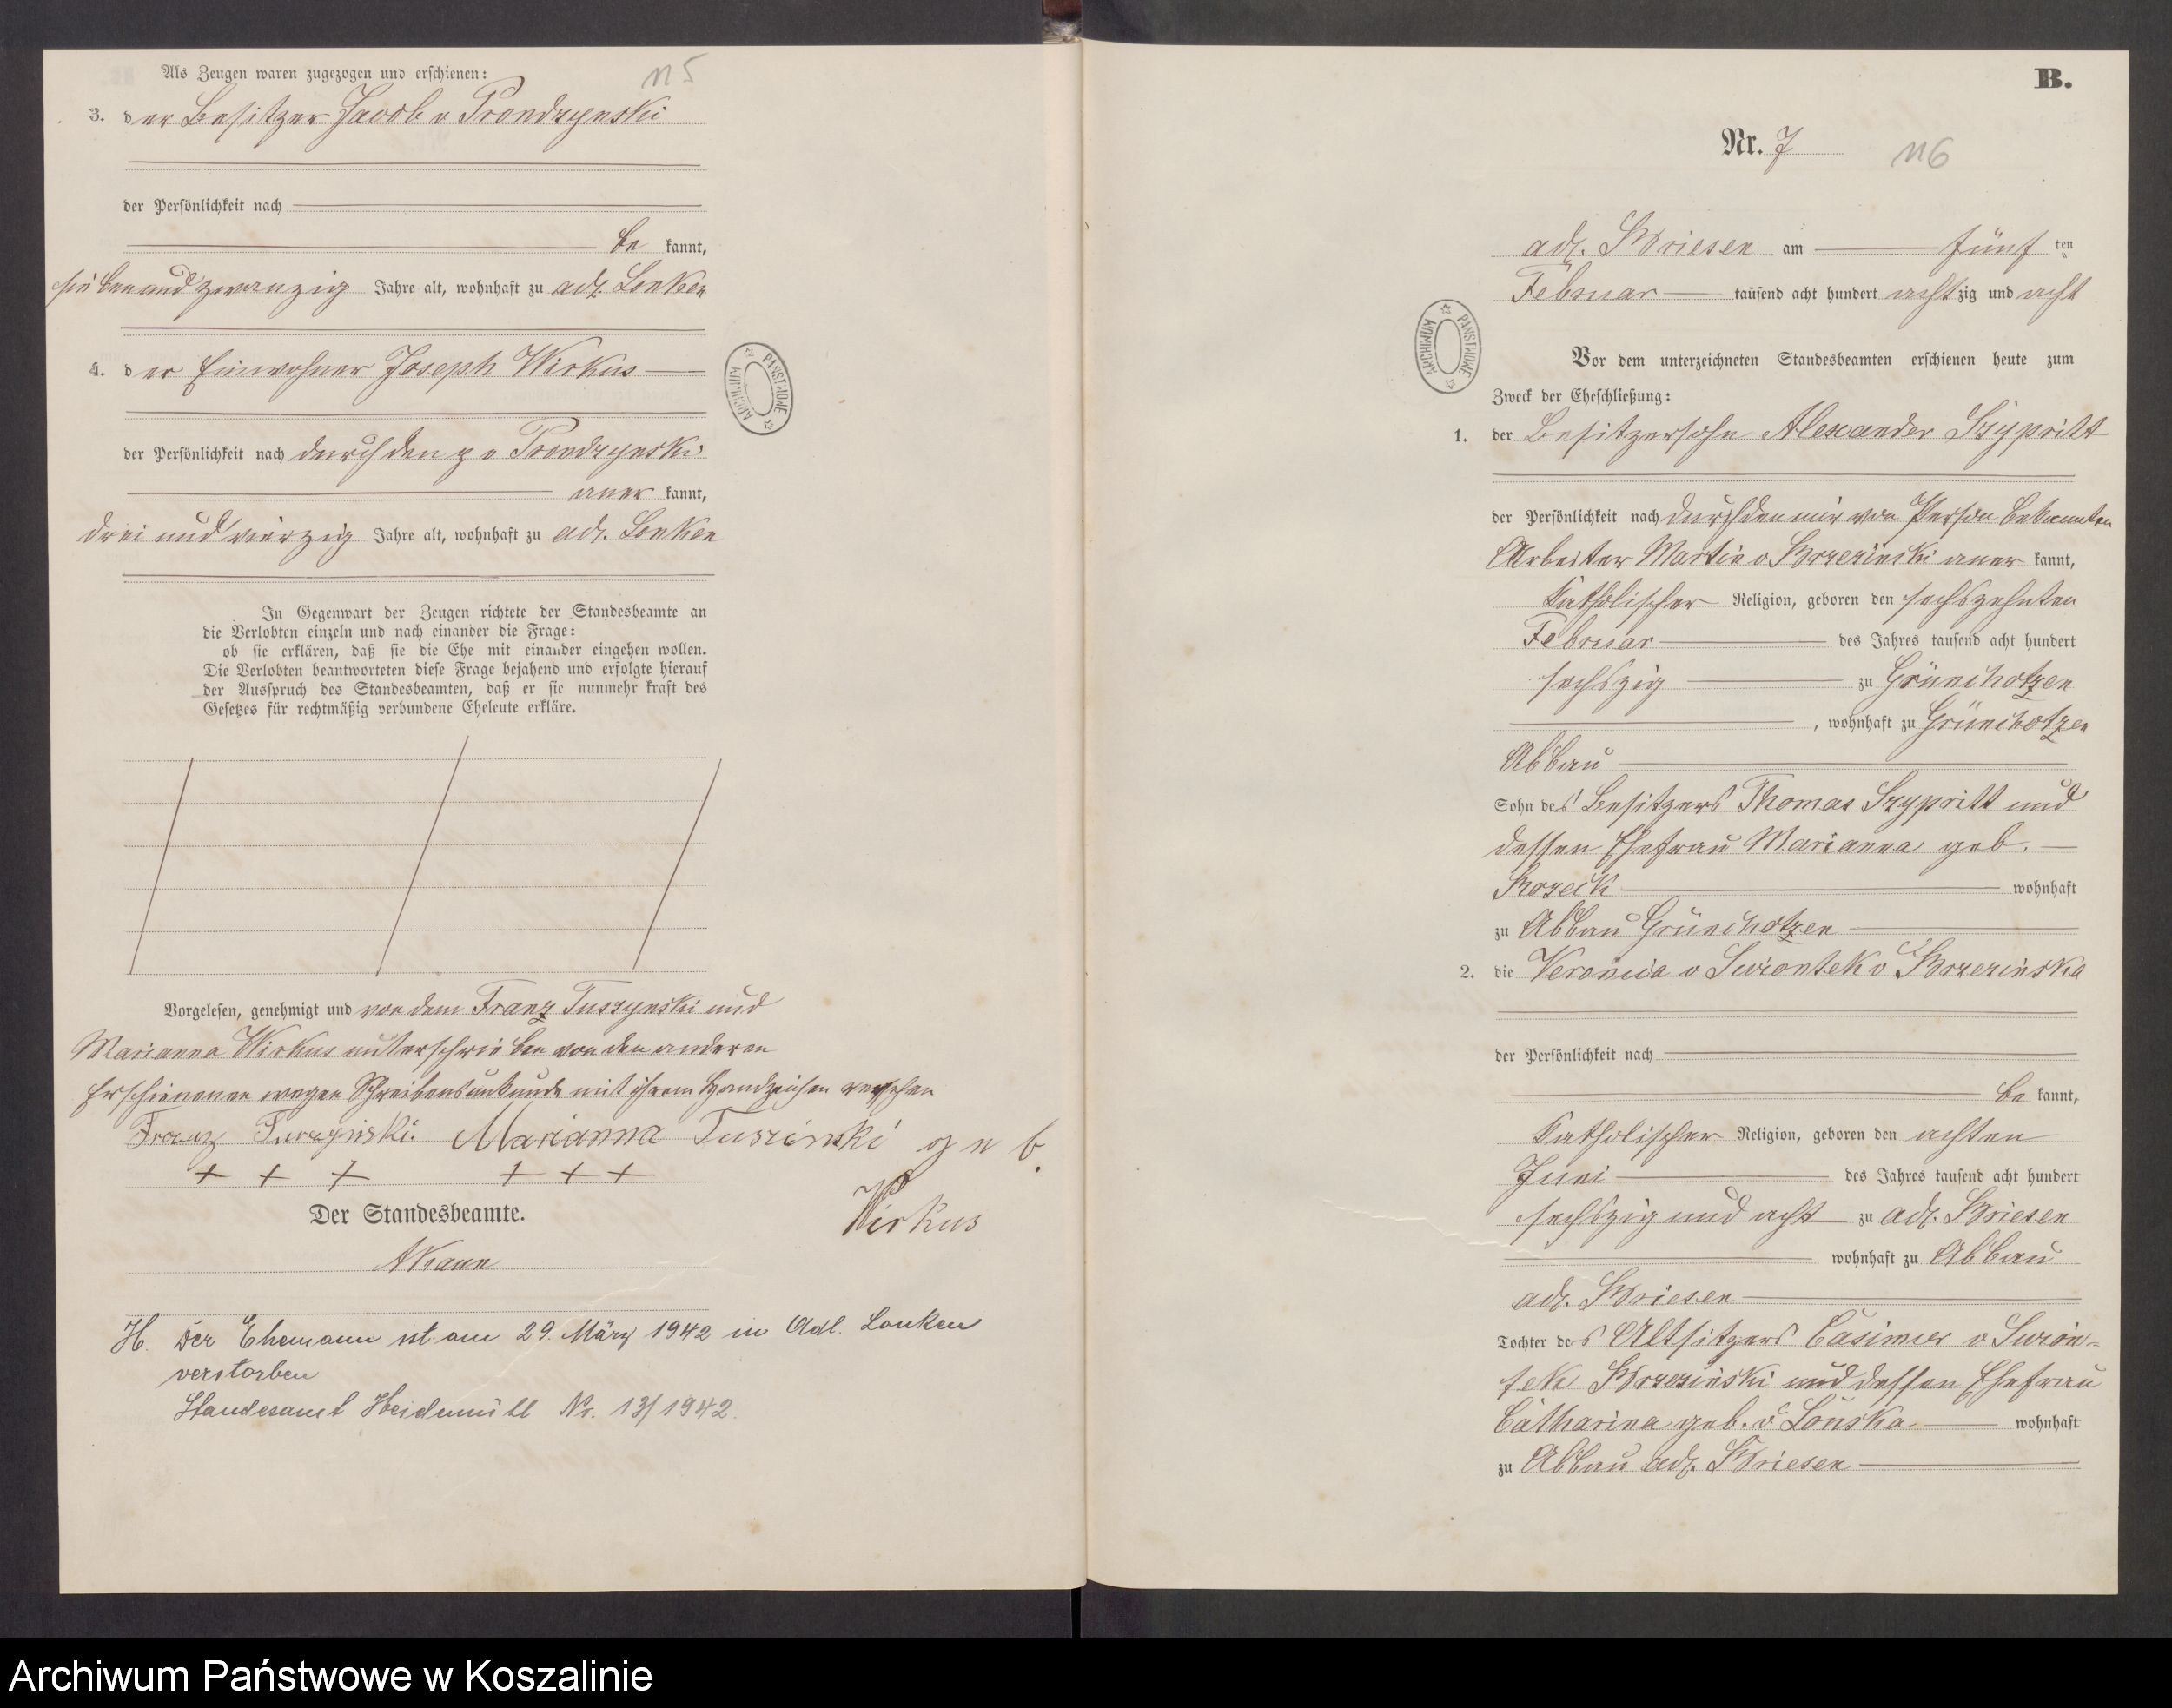 115
Als Zeugen waren zugezogen und erschienen:
3. der Besitzer Jacob v Prondzynski
der Persönlichkeit nach
be kannt,
sieben und zwanzig Jahre alt, wohnhaft zu adl. Lonken
4. der Einwohner Joseph Wirkus
der Persönlichkeit nach durch den p v Prondzynski
aner kannt,
drei und vierzig Jahre alt, wohnhaft zu adl. Lonken
In Gegenwart der Zeugen richtete der Standesbeamte an
die Verlobten einzeln und nach einander die Frage:
ob sie erklären, daß sie die Ehe mit einander eingehen wollen.
Die Verlobten beantworteten diese Frage bejahend und erfolgte hierauf
der Ausspruch des Standesbeamten, daß er sie nunmehr kraft des
Gesetzes für rechtmäßig verbundene Eheleute erkläre.
Vorgelesen, genehmigt und von dem Franz Tuszynski und
Marianna Wirkus unterschrieben von den anderen
Erschienenen wegen Schreibensunkunde mit ihrem Handzeichen versehen
Franz Marianna Tuszinski geb.
+ + + + + +
Wirkus
Der Standesbeamte.
H. Der Ehemann ist am 29. März 1942 in Adl. Lonken
verstorben
Standesamt Heidemühl Nr. 13/1942.
ARCHIWUM PAŃSTWOWE
B.
Nr. 7
116
adl. Briesen am fünf ten
Februar tausend acht hundert achtzig und acht
ARCHIWUM PAŃSTWOWE
Vor dem unterzeichneten Standesbeamten erschienen heute zum
Zweck der Eheschließung:
1. der Besitzersohn Alexander Szypritt
der Persönlichkeit nach durch den mir von Person bekannten
Arbeiter Martin v Brzezinski aner kannt,
katholischer Religion, geboren den sechszehnten
Februar des Jahres tausend acht hundert
sechszig zu Grünchotzen
, wohnhaft zu Grünchotzen
Abbau
Sohn des Besitzers Thomas Szypritt und
dessen Ehefrau Marianna geb.
wohnhaft
zu Abbau Grünchotzen
2. die Veronica v Swiontek v Brzezinska
der Persönlichkeit nach
be kannt,
katholischer Religion, geboren den achten
Juni des Jahres tausend acht hundert
sechszig und acht zu adl. Briesen
wohnhaft zu Abbau
adl. Briesen
Tochter des Altsitzers Casimir v Swion-
tek Brzezinski und dessen Ehefrau
Catharina geb. v Lonska wohnhaft
zu Abbau adl. Briesen
Archiwum Państwowe w Koszalinie